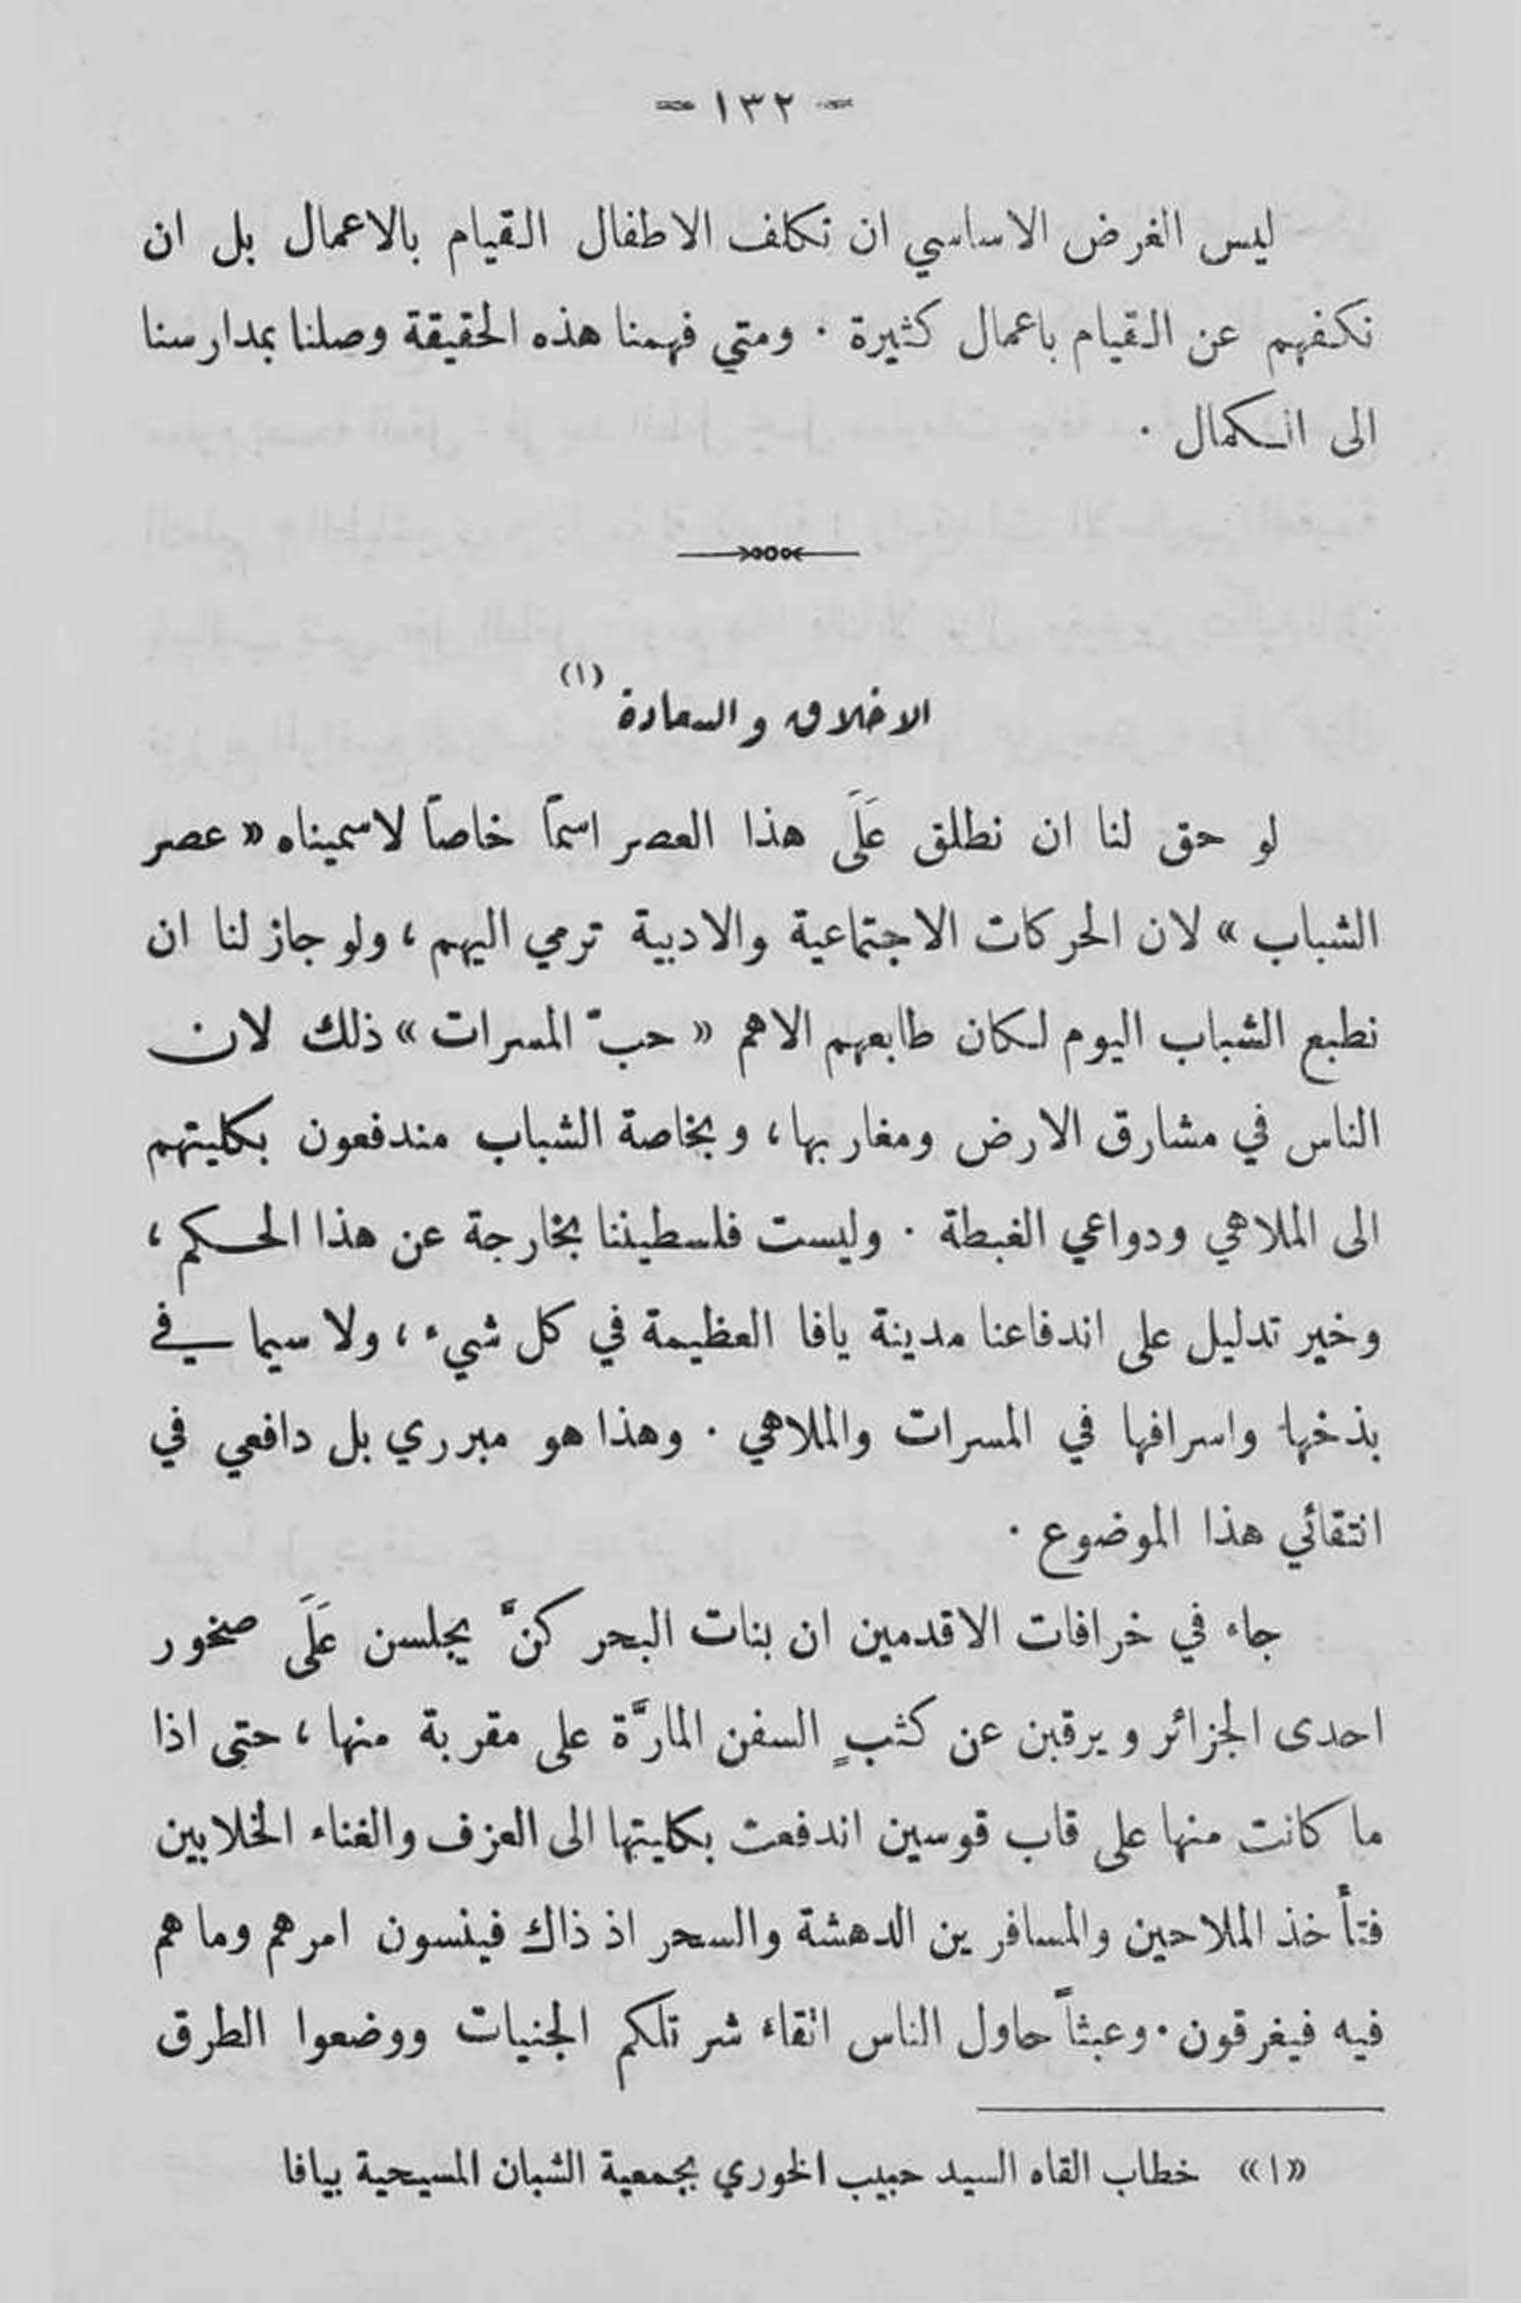 - ١٣٢ -
ليس الغرض الاساسي ان نكلف الاطفال القيام بالاعمال بل ان
نكفهم عن القيام باعمال كثيرة . ومتي فهمنا هذه الحقيقة وصلنا بمدارسنا
الى الكمال .
الاخلاق والسعادة (١)
لو حق لنا ان نطلق عَلَى هذا العصر اسمًا خاصاً لاسميناه « عصر
الشباب » لان الحركات الاجتماعية والادبية ترمي اليهم ، ولو جاز لنا ان
نطبع الشباب اليوم لكان طابعهم الاهم « حبّ المسرات » ذلك لان
الناس في مشارق الارض ومغاربها ، وبخاصة الشباب مندفعون بكليتهم
الى الملاهي ودواعي الغبطة . وليست فلسطيننا بخارجة عن هذا الحكم ،
وخير تدليل على اندفاعنا مدينة يافا العظيمة في كل شيء ، ولا سيما في
بذخها واسرافها في المسرات والملاهي . وهذا هو مبرري بل دافعي في
انتقائي هذا الموضوع .
جاء في خرافات الاقدمين ان بنات البحر كنَّ يجلسن عَلَى صخور
احدى الجزائر ويرقبن عن كثبٍ السفن المارَّة على مقربة منها ، حتى اذا
ما كانت منها على قاب قوسين اندفعت بكليتها الى العزف والغناء الخلابين
فتأخذ الملاحين والمسافرين الدهشة والسحر اذ ذاك فينسون امرهم وما هم
فيه فيغرقون . وعبثاً حاول الناس اتقاء شر تلكم الجنيات ووضعوا الطرق
«١» خطاب القاه السيد حبيب الخوري بجمعية الشبان المسيحية بيافا